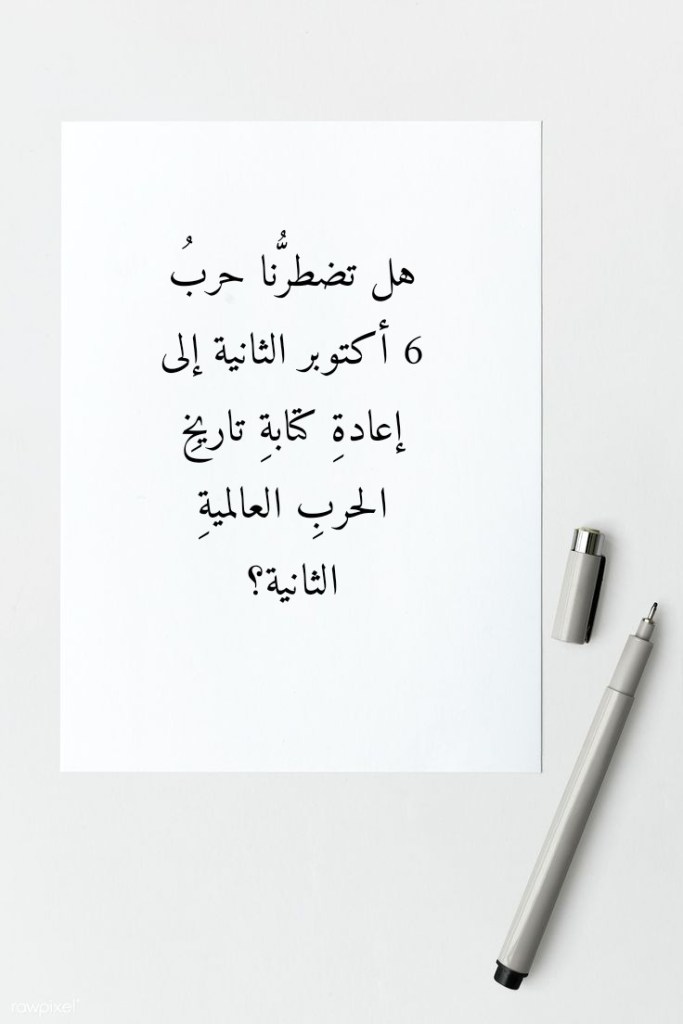 هل تضطرُّنا حربُ
6 أكتوبر الثانية إلى
إعادةِ كتابةِ تاريخِ
الحربِ العالميةِ
الثانية؟
rawpixel